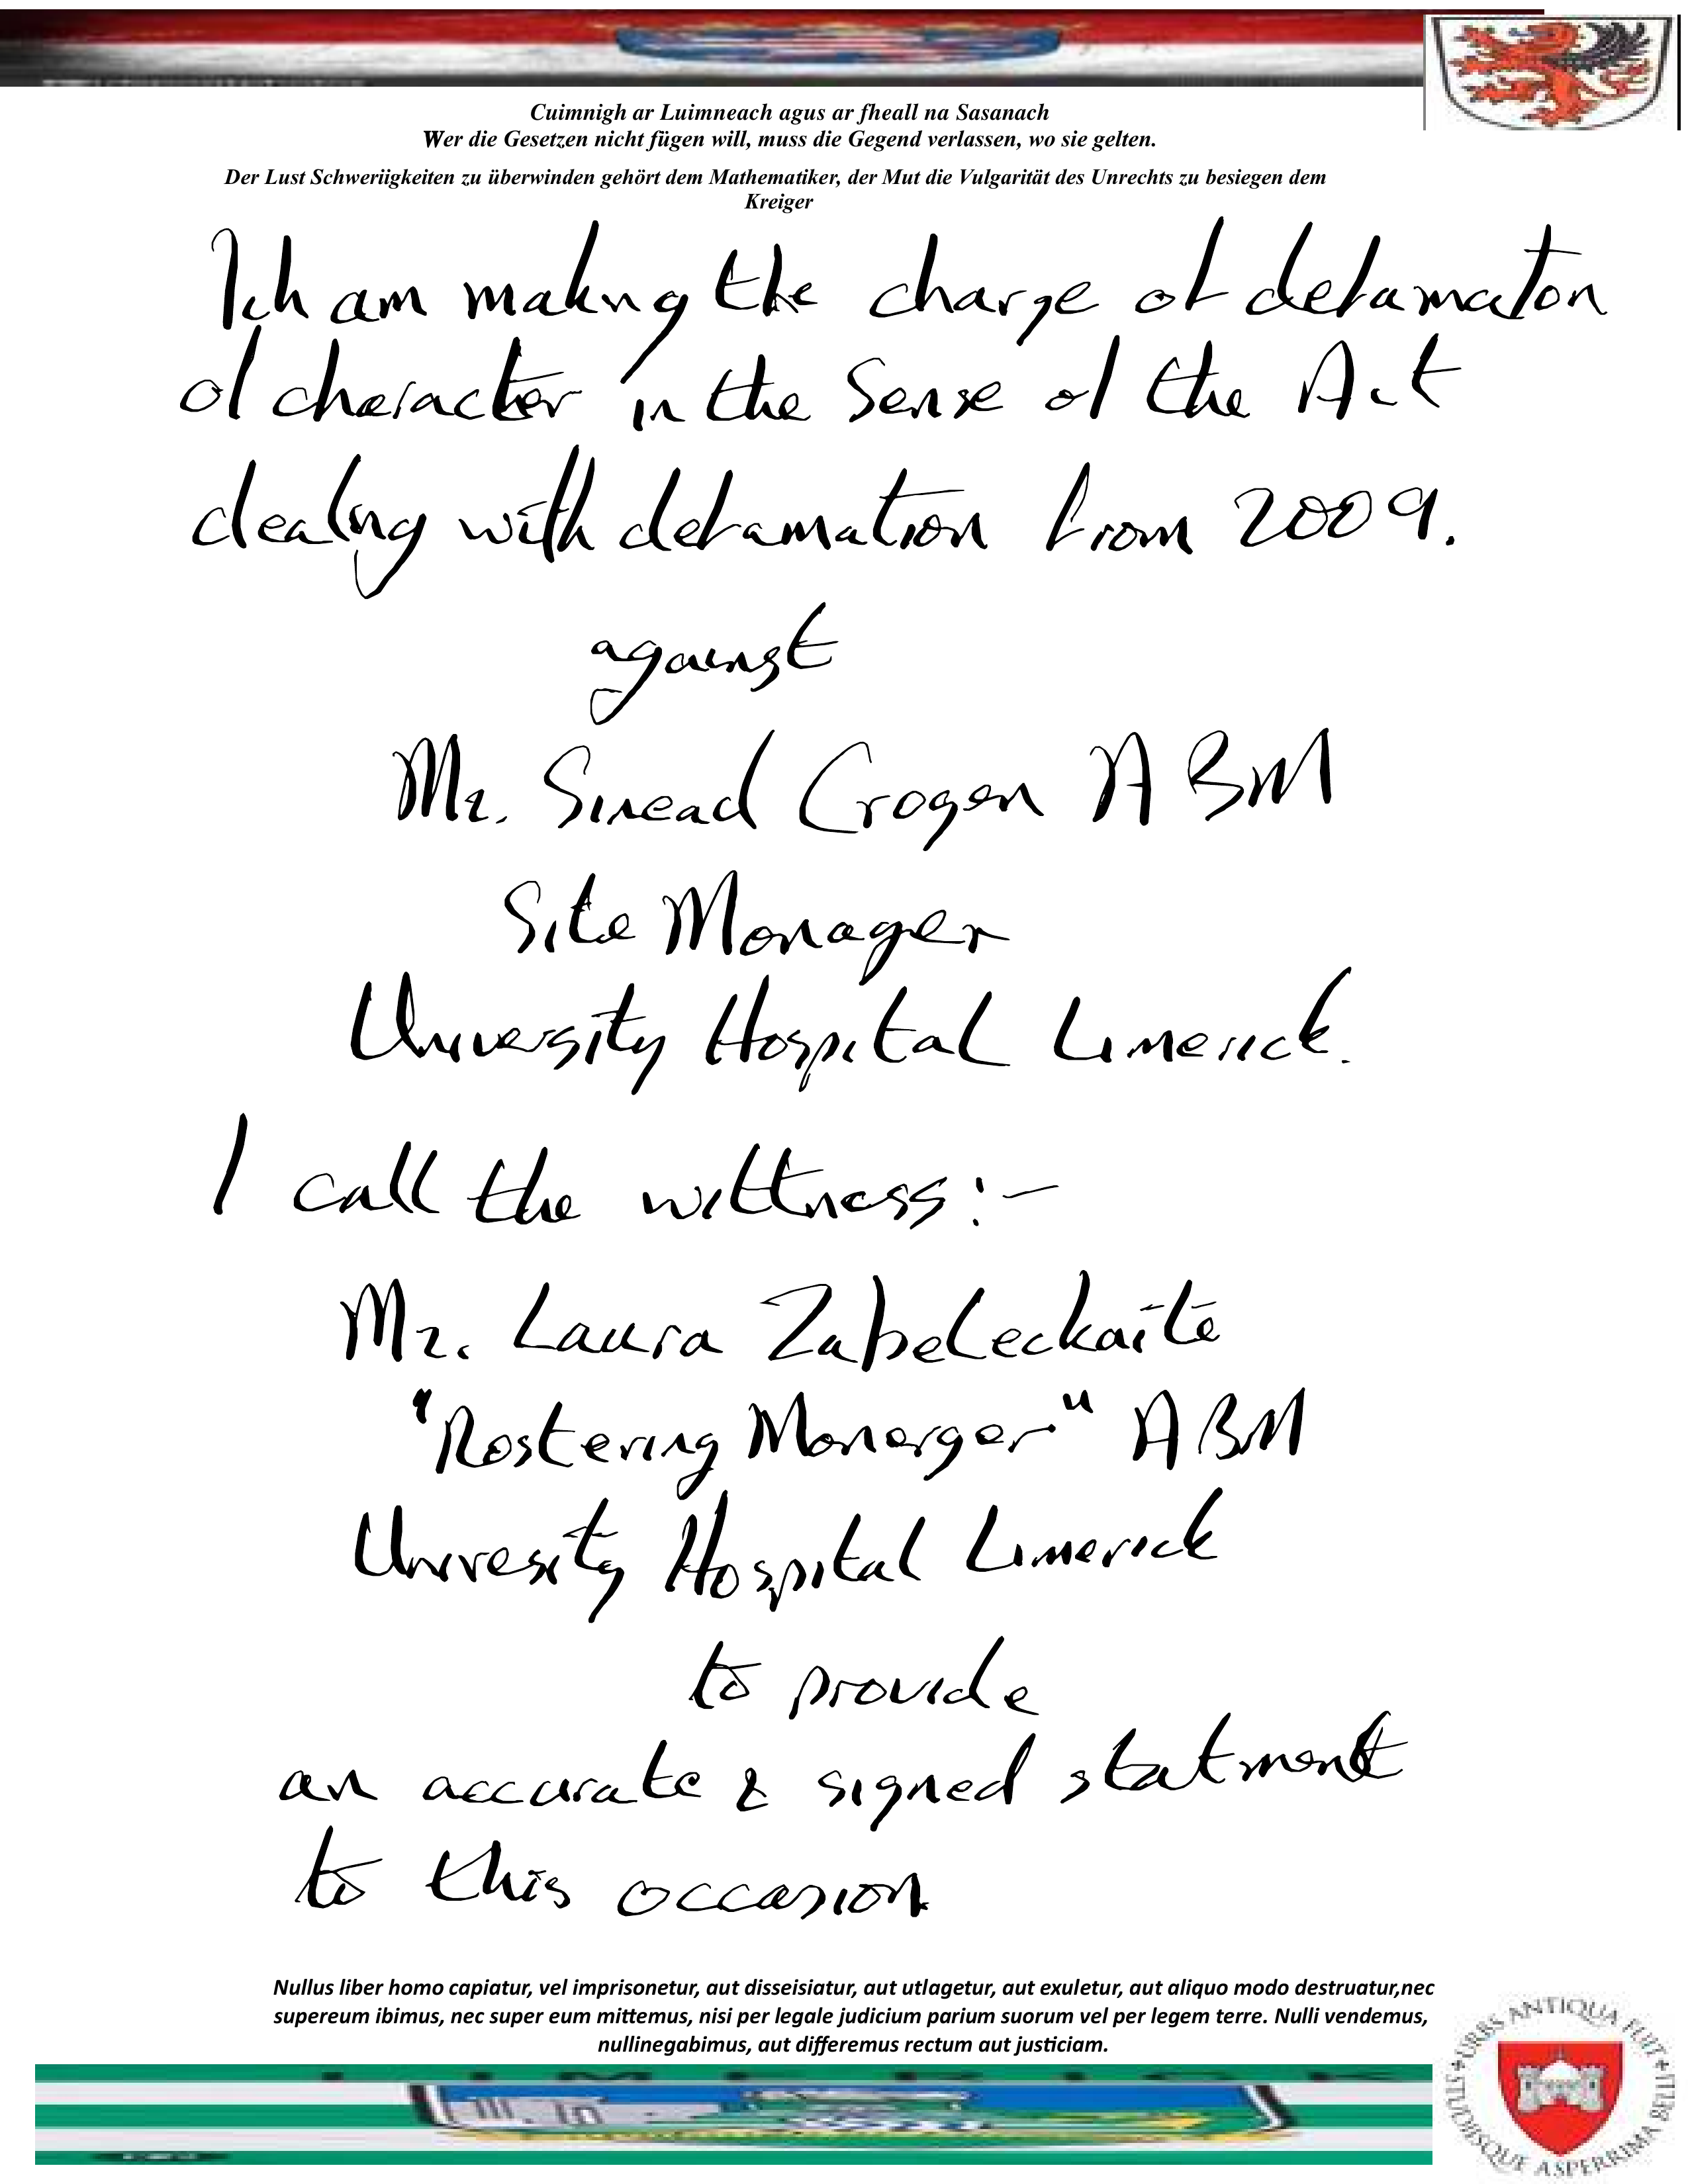 Cuimnigh ar Luimneach agus ar fheall na Sasanach
Wer die Gesetzen nicht fügen will, muss die Gegend verlassen, wo sie gelten.
Der Lust Schweriigkeiten zu überwinden gehört dem Mathematiker, der Mut die Vulgarität des Unrechts zu besiegen dem
Kreiger
Ich am making the charge of defamaton
of character in the Sense of the Act
dealing with defamation from 2009.
against
Mr. Sinead Crogan ABM
Site Manager
University Hospital Limerick.
I call the wittness:-
Mr. Laura Zabeleckaite
"Rostering Manager" ABM
University Hospital Limerick
to provide
an accurate & signed statment
to this occasion
Nullus liber homo capiatur, vel imprisonetur, aut disseisiatur, aut utlagetur, aut exuletur, aut aliquo modo destruatur,nec
supereum ibimus, nec super eum mittemus, nisi per legale judicium parium suorum vel per legem terre. Nulli vendemus,
nullinegabimus, aut differemus rectum aut justiciam.
URBS ANTIQUA FUIT STUDIISQUE ASPERRIMA BELLI